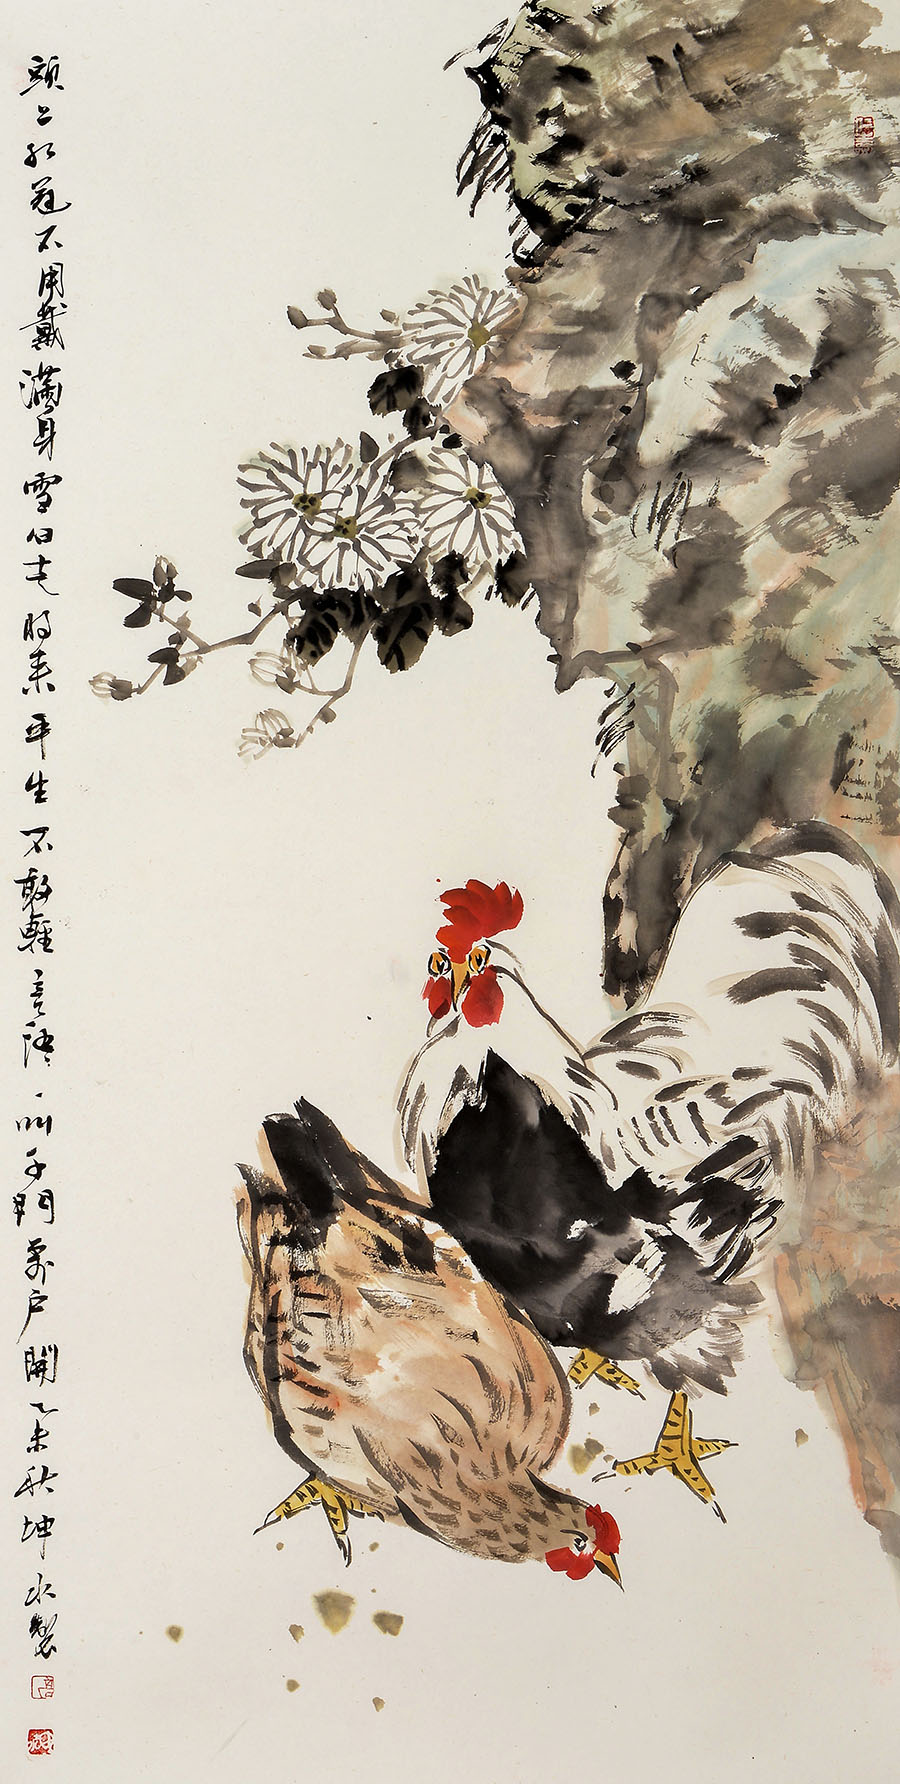 頭上紅冠不用裁滿身雪白走將來平生不敢輕言語一叫千門萬戶開乙未秋坤水製